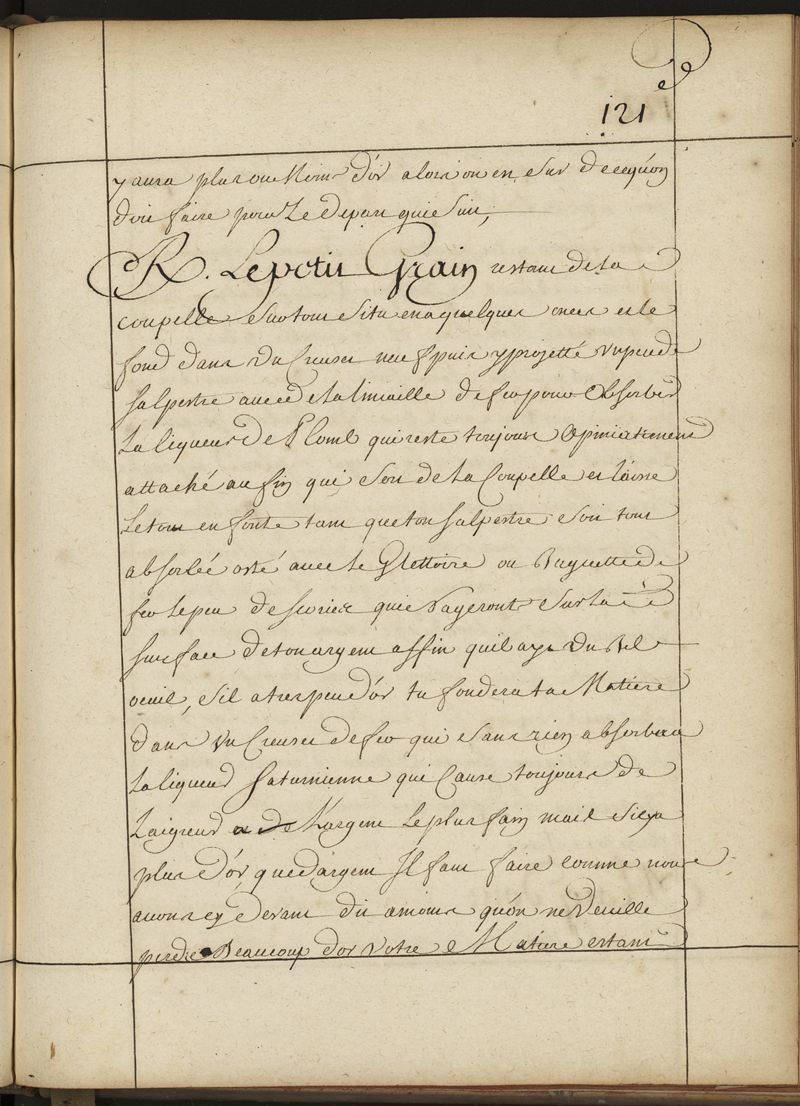 121
y aura plus ou Moins d'or alors on est Sur de ce qu'on
doit faire pour Le depart qui Suit,
R. Le petit Grain restant de ta
coupelle Surtout Si tu en a quelques onces et le
fond dans Un Creuset neuf puis y projetté Un peu de
salpestre avec de ta limaille de fer pour Absorber
La liqueur de Plomb qui reste toujours Opiniatrement
attaché au fin qui Sort de ta Coupelle et laisse
Le tout en fonte tant que ton salpestre Soit tout
absorbée osté avec le Glettoire ou Baguette de
fer le peu de scories qui Nageront Sur la
surface de ton argent affin quil aye Un Bel
oeuil, S'il a tres peu d'or tu fondera ta Matiere
dans Un Creuset de fer qui Sans rien absorbera
La liqueur saturnienne qui Cause toujours de
L'aigreur a de L'argent Le plus fain mais Si ya
plus d'or que d'argent Il faut faire comme nous
avons cy devant dit amoins qu'on ne Veuille
perdre Beaucoup d'or Votre Matiere estant